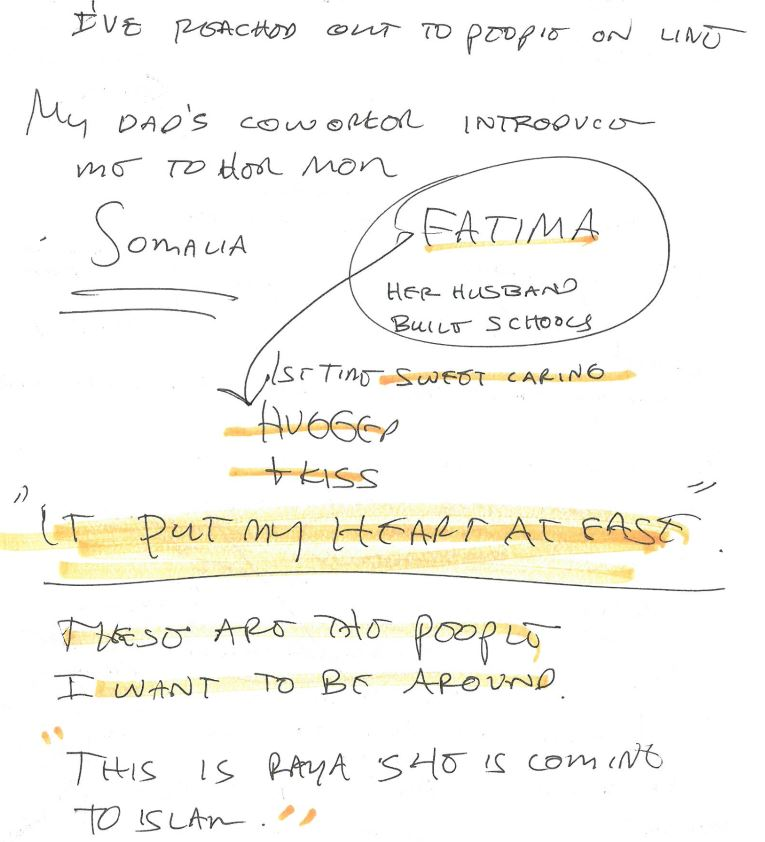 I'VE REACHED OUT TO PEOPLE ON LINE
MY DAD'S COWORKER INTRODUCE
ME TO HER MOM
SOMALIA
FATIMA
HER HUSBAND
BUILT SCHOOLS
1ST TIME SWEET CARING
HUGGED
+ KISS
"IT PUT MY HEART AT EASE".
THESE ARE THE PEOPLE
I WANT TO BE AROUND.
"THIS IS RAYA SHE IS COMING
TO ISLAM."